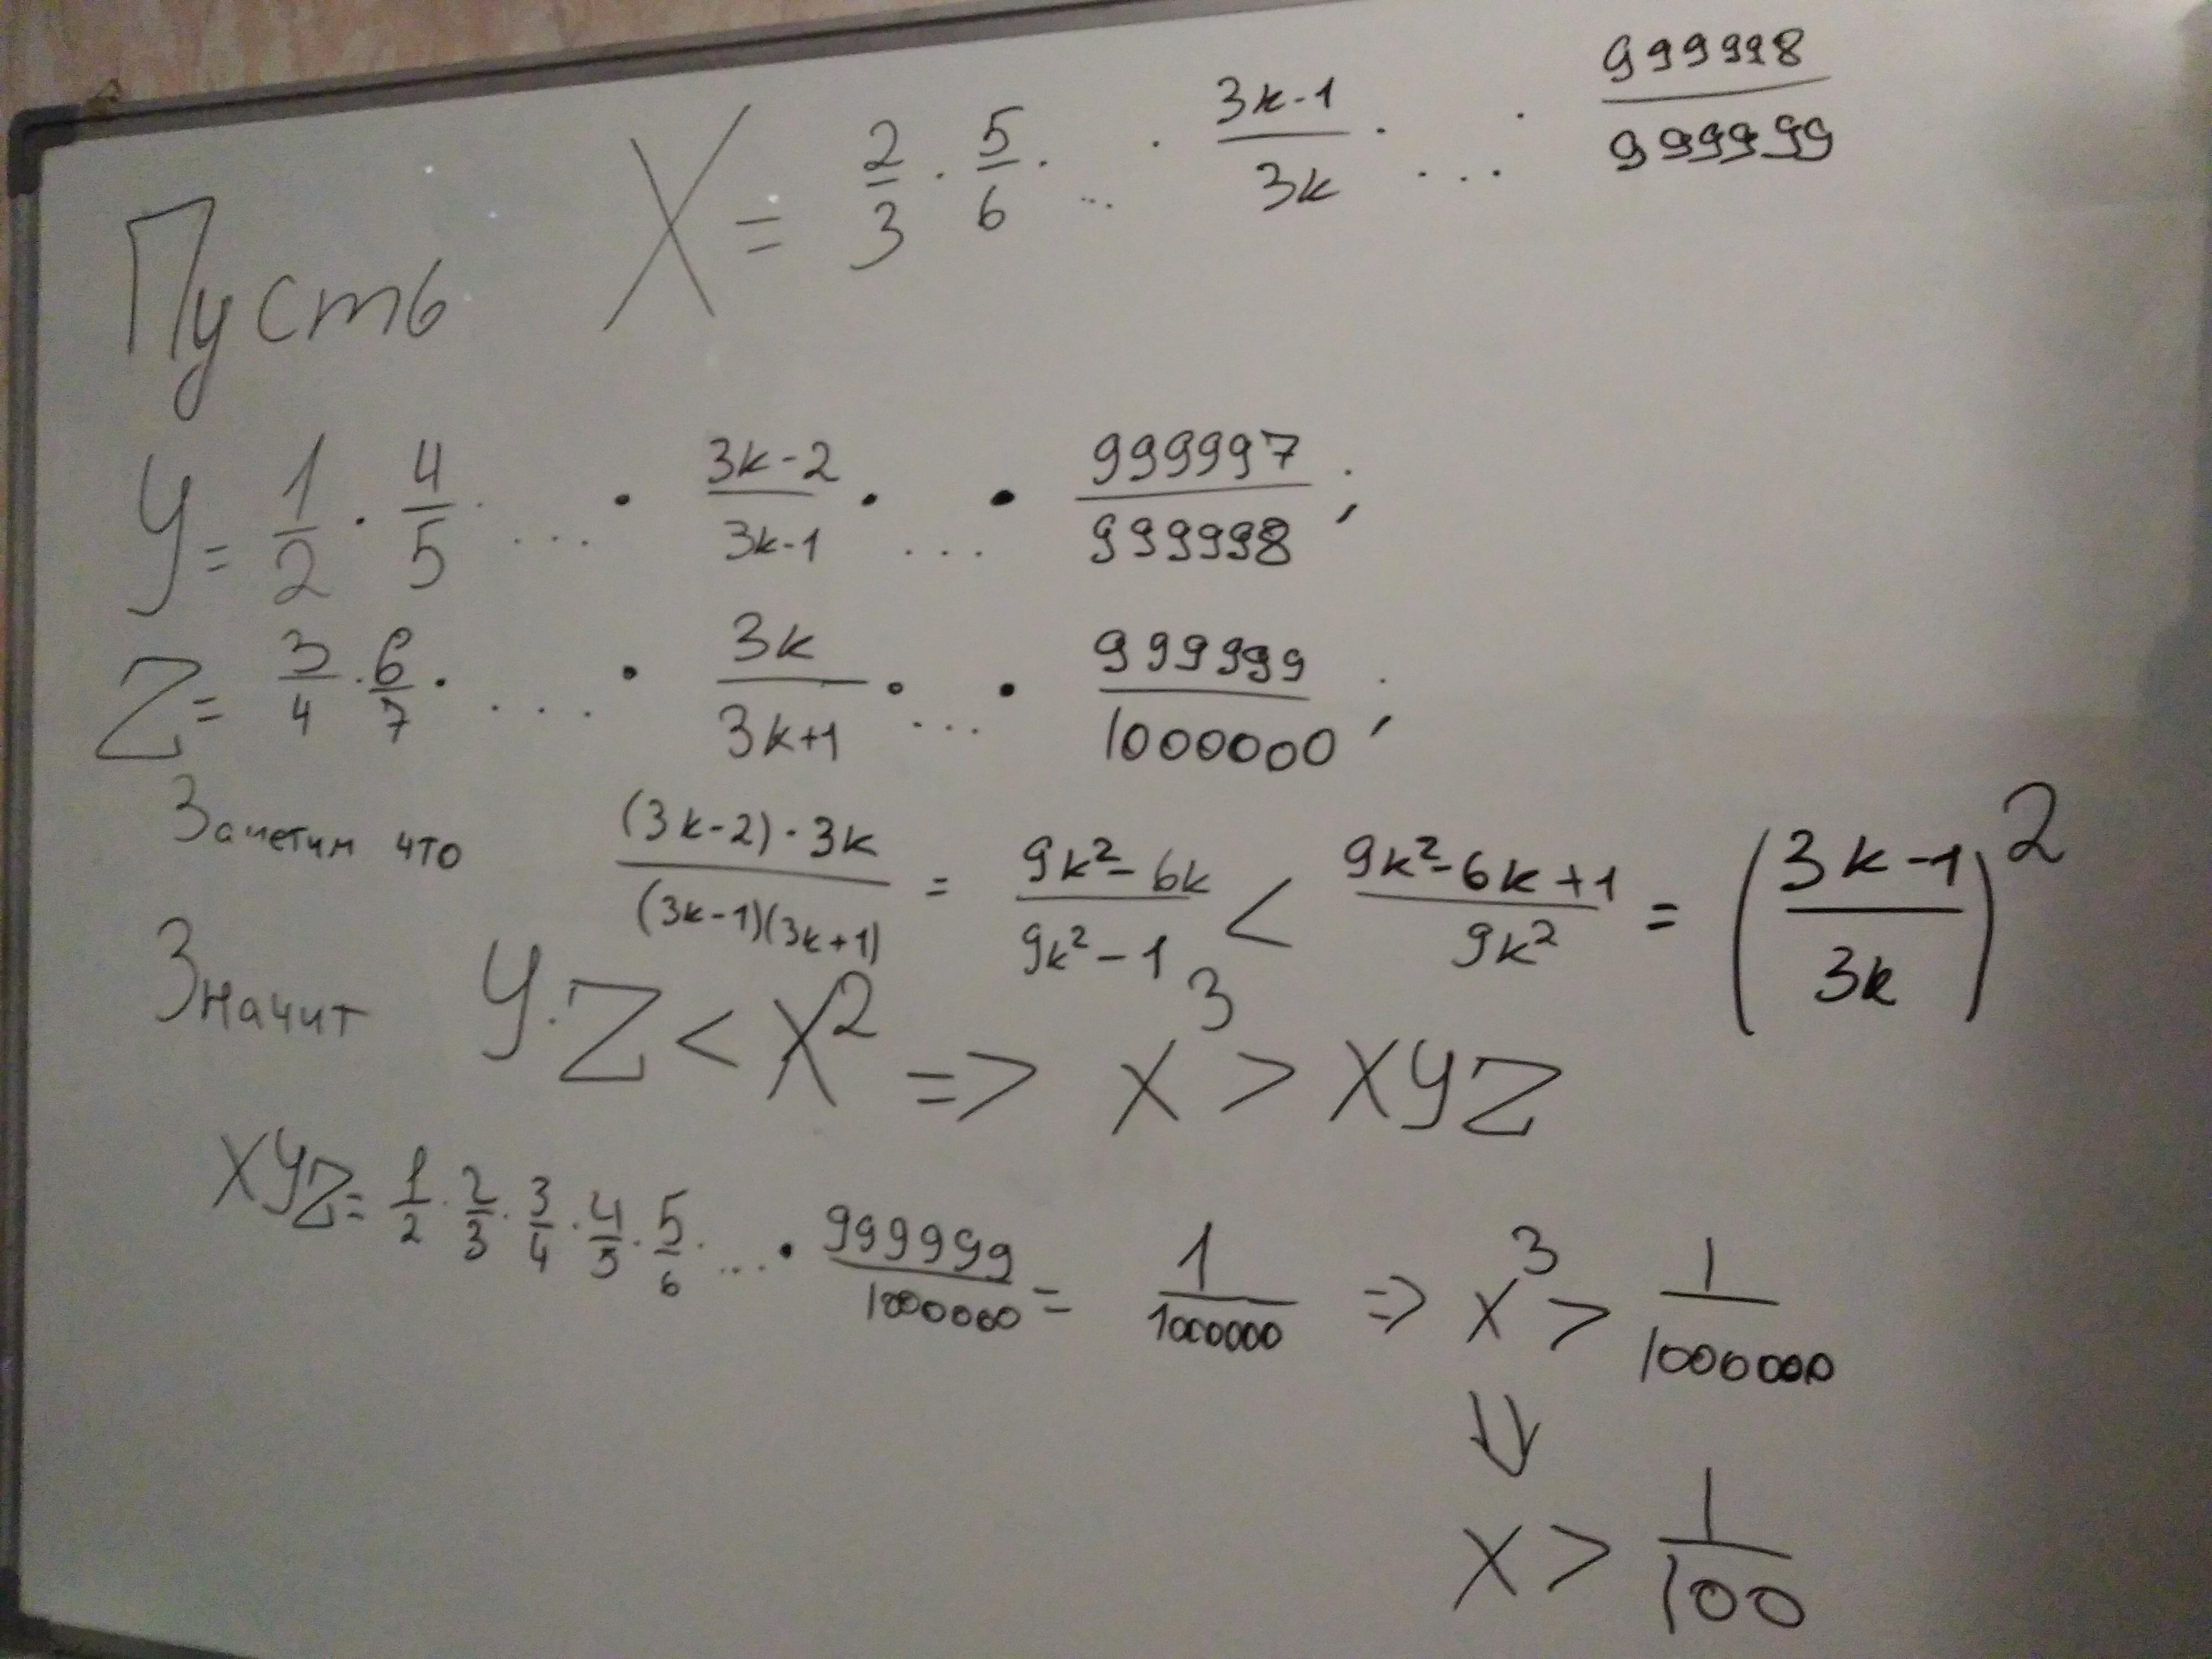 Пусть X = 2/3 · 5/6 · ... · (3k-1)/3k · ... · 999998/999999
y = 1/2 · 4/5 · ... · (3k-2)/(3k-1) · ... · 999997/999998 ;
Z = 3/4 · 6/7 · ... · 3k/(3k+1) · ... · 999999/1000000 ;
Заметим что ((3k-2)·3k)/((3k-1)(3k+1)) = (9k²-6k)/(9k²-1) < (9k²-6k+1)/9k² = ((3k-1)/3k)²
Значит y·Z < X² => x³ > xyz
xyz = 1/2 · 2/3 · 3/4 · 4/5 · 5/6 · ... · 999999/1000000 = 1/1000000 => x³ > 1/1000000
⇓
x > 1/100